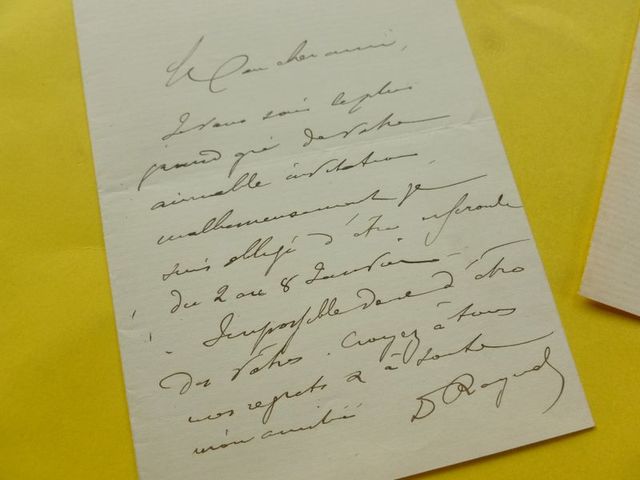 Mon cher ami,
Je vous sais le plus
grand gré de votre
aimable invitation.
malheureusement je
suis obligé d'être en route
du 2 au 8 Janvier
Impossible donc d'être
des vôtres. Croyez à tous
mes regrets & à toute
mon amitié